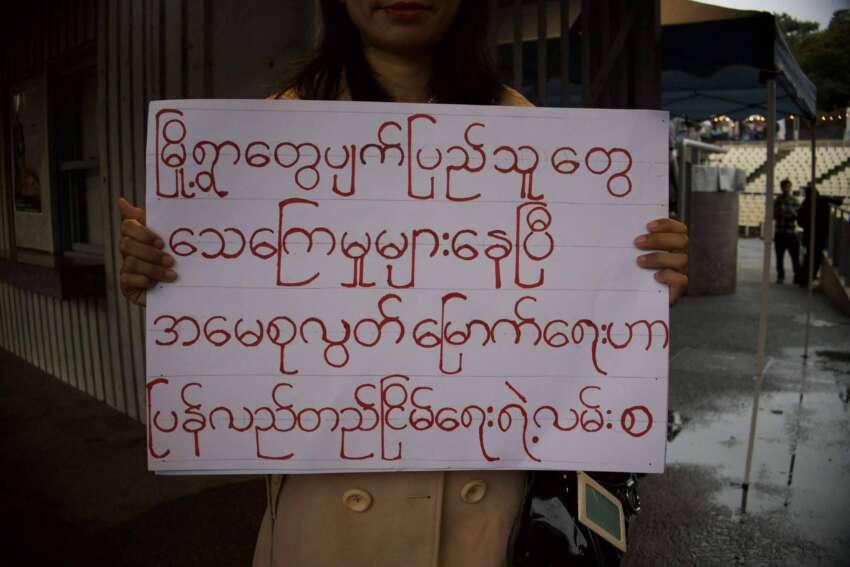 မြို့ရွာတွေပျက်ပြည်သူ တွေ
သေကြေမှုများနေပြီ
အမေစုလွတ်မြောက်ရေးဟာ
ပြန်လည်တည်ငြိမ်ရေးရဲ့လမ်း စ